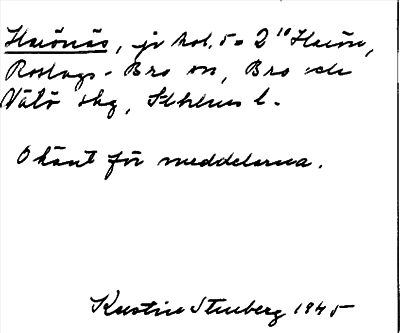 Harönäs, jr kol. 5 o 2¹⁰ Harön,
Roslags-Bro sn, Bro och
Vätö skg, Sthlms l.
Okänt för meddelarna.
Kerstin Stenberg 1945